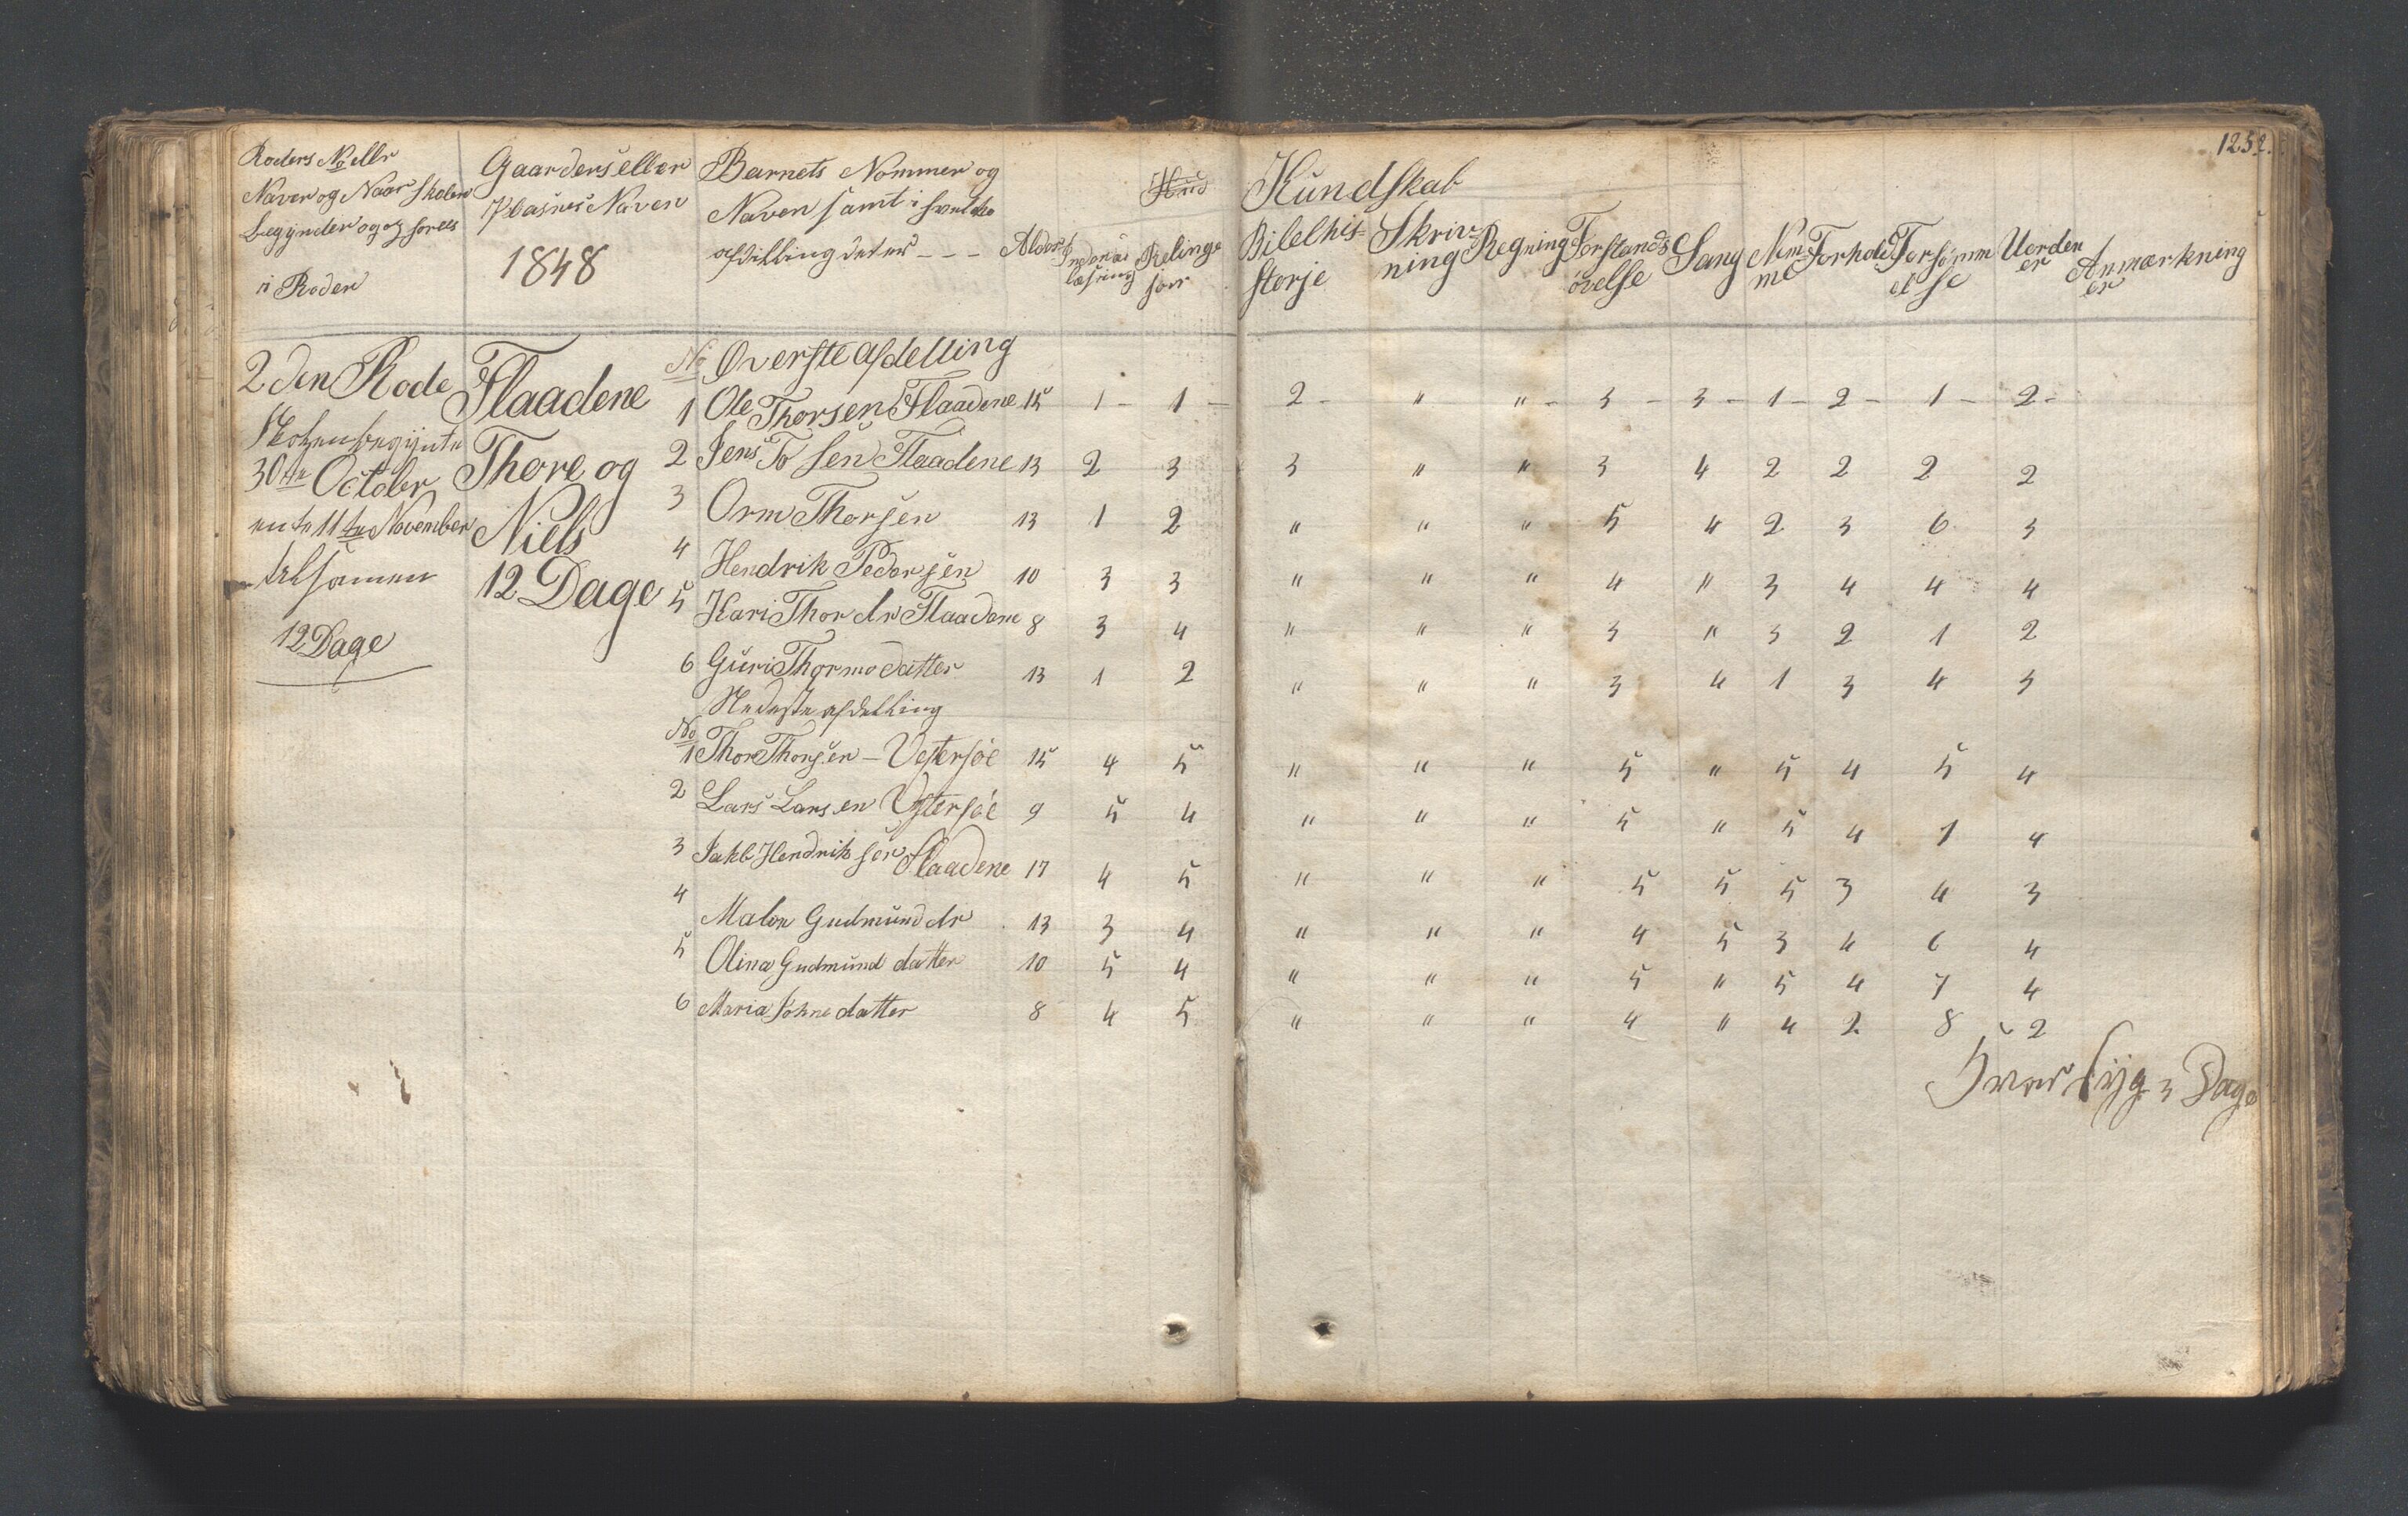 1252.
Roders No ellr
Naver og Naar Skolen
begynder og op hores
i Roden
Gaarders eller
Plasnes Naven
1848
Barnets Nommer og
Naven samt i hvelke
afdelling det er - - - Alder
Religions
Kundskab
Bibelhistorje
Skrivning
Regning
Forstandsövelse
Sang
Nemme
Forhold
Forsömmelse
Uorden er
Anmærkning er
2den Rode
Skolen begynte
30te October
ente 11te November
tilsamen
12 Dage
Flaadene
Thore og
Niels
12 Dage
No Øverste afdelling
1 Ole Thorsen Flaadene 15 1 - 1 - 2 - " " - 3 - 3 - 1 - 2 - 1 - 2 -
2 Jens To sen Flaadene 13 2 3 3 " " 3 4 2 2 2 2
3 Orm Thorsen 13 1 2 " " " 5 4 2 3 6 3
4 Hendrik Pedersen 10 3 3 " " " 4 " 3 4 4 4
5 Kari Thor dr Flaadene 8 3 4 " " " 3 " 3 2 1 2
6 Guri Thormodatter 13 1 2 " " " 3 4 1 3 4 3
Nedeste afdelling
No
1 Thore Thorsen - Vestersöe 15 4 5 " " " 5 " 5 4 5 4
2 Lars Larsen Vestersöe 9 5 4 " " " 5 " 5 4 1 4
3 Jakb Hendriksen Flaadene 17 4 5 " " " 5 5 5 3 4 3
4 Malene Gudmund dr 13 3 4 " " " 4 5 3 4 6 4
5 Olina Gudmund datter 10 5 4 " " " 5 " 5 4 7 4
6 Maria Johne datter 8 4 5 " " " 4 " 4 2 8 2
var syg 3 Dage